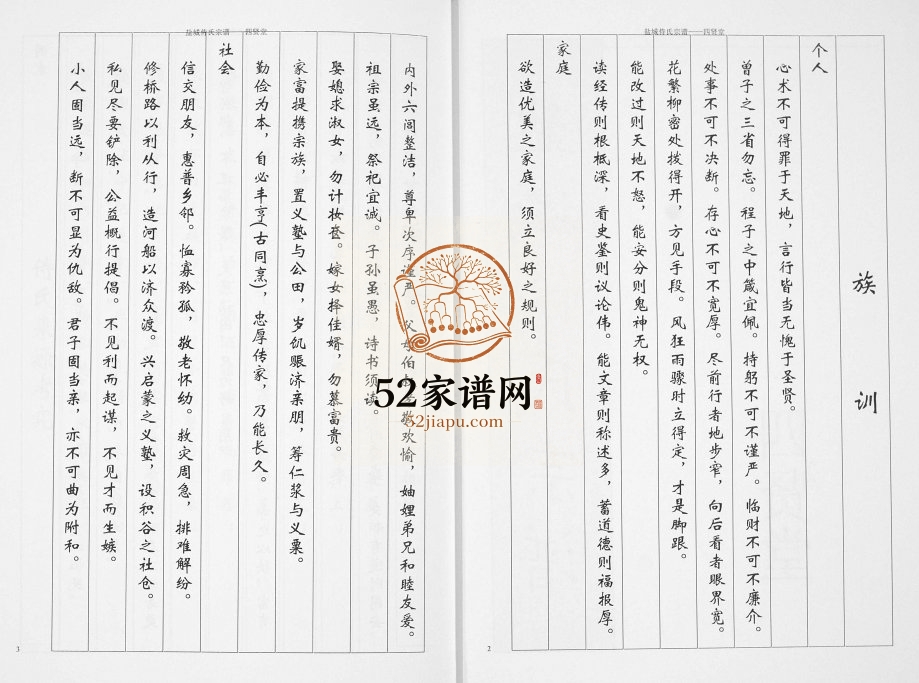 盐城氏宗谱——四贤堂
族训
个人
心术不可得罪于天地，言行皆当无愧于圣贤。
曾子之三省勿忘。程子之中箴宜佩。持躬不可不谨严。临财不可不廉介。
处事不可不决断。存心不可不宽厚。尽前行者地步窄，向后看者眼界宽。
花繁柳密处拨得开，方见手段。风狂雨骤时立得定，才是脚跟。
能改过则天地不怒，能安分则鬼神无权。
读经传则根柢深，看史鉴则议论伟。能文章则称述多，蓄道德则福报厚。
家庭
欲造优美之家庭，须立良好之规则。
2
盐城氏宗谱——四贤堂
内外六闾整洁，尊卑次序谨严。父母伯敬欢愉，妯娌弟兄和睦友爱。
祖宗虽远，祭祀宜诚。子孙虽愚，诗书须读。
娶媳求淑女，勿计妆奁。嫁女择佳婿，勿慕富贵。
家富提携宗族，置义塾与公田，岁饥赈济亲朋，筹仁浆与义粟。
勤俭为本，自必丰亨(古同烹)，忠厚传家，乃能长久。
社会
信交朋友，惠普乡邻。恤寡矜孤，敬老怀幼。救灾周急，排难解纷。
修桥路以利从行，造河船以济众渡。兴启蒙之义塾，设积谷之社仓。
私见尽要铲除，公益概行提倡。不见利而起谋，不见才而生嫉。
小人固当远，断不可显为仇敌。君子固当亲，亦不可曲为附和。
3
52家谱网
52jiapu.com